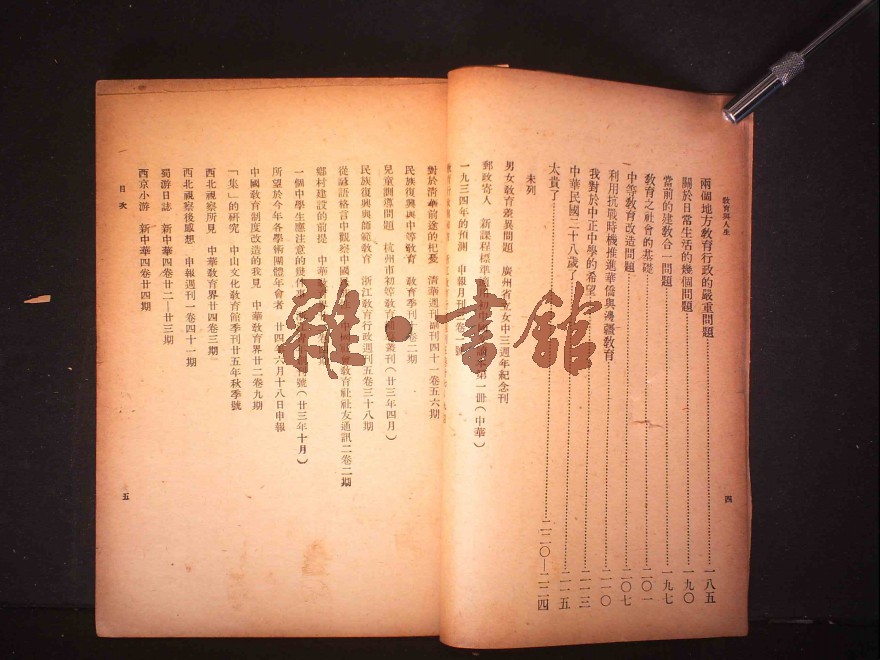 教育與人生
兩個地方教育行政的嚴重問題 一八五
關於日常生活的幾個問題 一九〇
當前的建教合一問題 一九七
教育之社會的基礎 二〇一
中等教育改造問題 二〇七
利用抗戰時機推進華僑與邊疆教育 二一〇
我對於中正中學的希望 二一三
中華民國二十八歲了 二一五
太貴了 二二〇—二二四
未列
男女教育差異問題 廣州省立女中三週年紀念刊
郵政寄人 新課程標準 第一冊(中華)
一九三四年的預測 申報月刊 卷一號
四
對於清華前途的杞憂 清華週刊副刊四十一卷五六期
民族復興與中等教育 教育季刊 卷二期
兒童訓導問題 杭州市初等教育 叢刊(廿三年四月)
民族復興與師範教育 浙江教育行政週刊五卷三十八期
從諺語格言中觀察中國 教育社社友通訊二卷二期
鄉村建設的前提 中華教
一個中學生應注意的幾件事 號(廿三年十月)
所望於今年各學術團體年會者 廿四年六月十八日申報
中國教育制度改造的我見 中華教育界廿二卷九期
「集」的研究 中山文化教育館季刊廿五年秋季號
西北視察所見 中華教育界廿四卷三期
西北視察後感想 申報週刊一卷四十一期
蜀游日誌 新中華四卷廿二—廿三期
西京小游 新中華四卷廿四期
目次
五
雜·書館